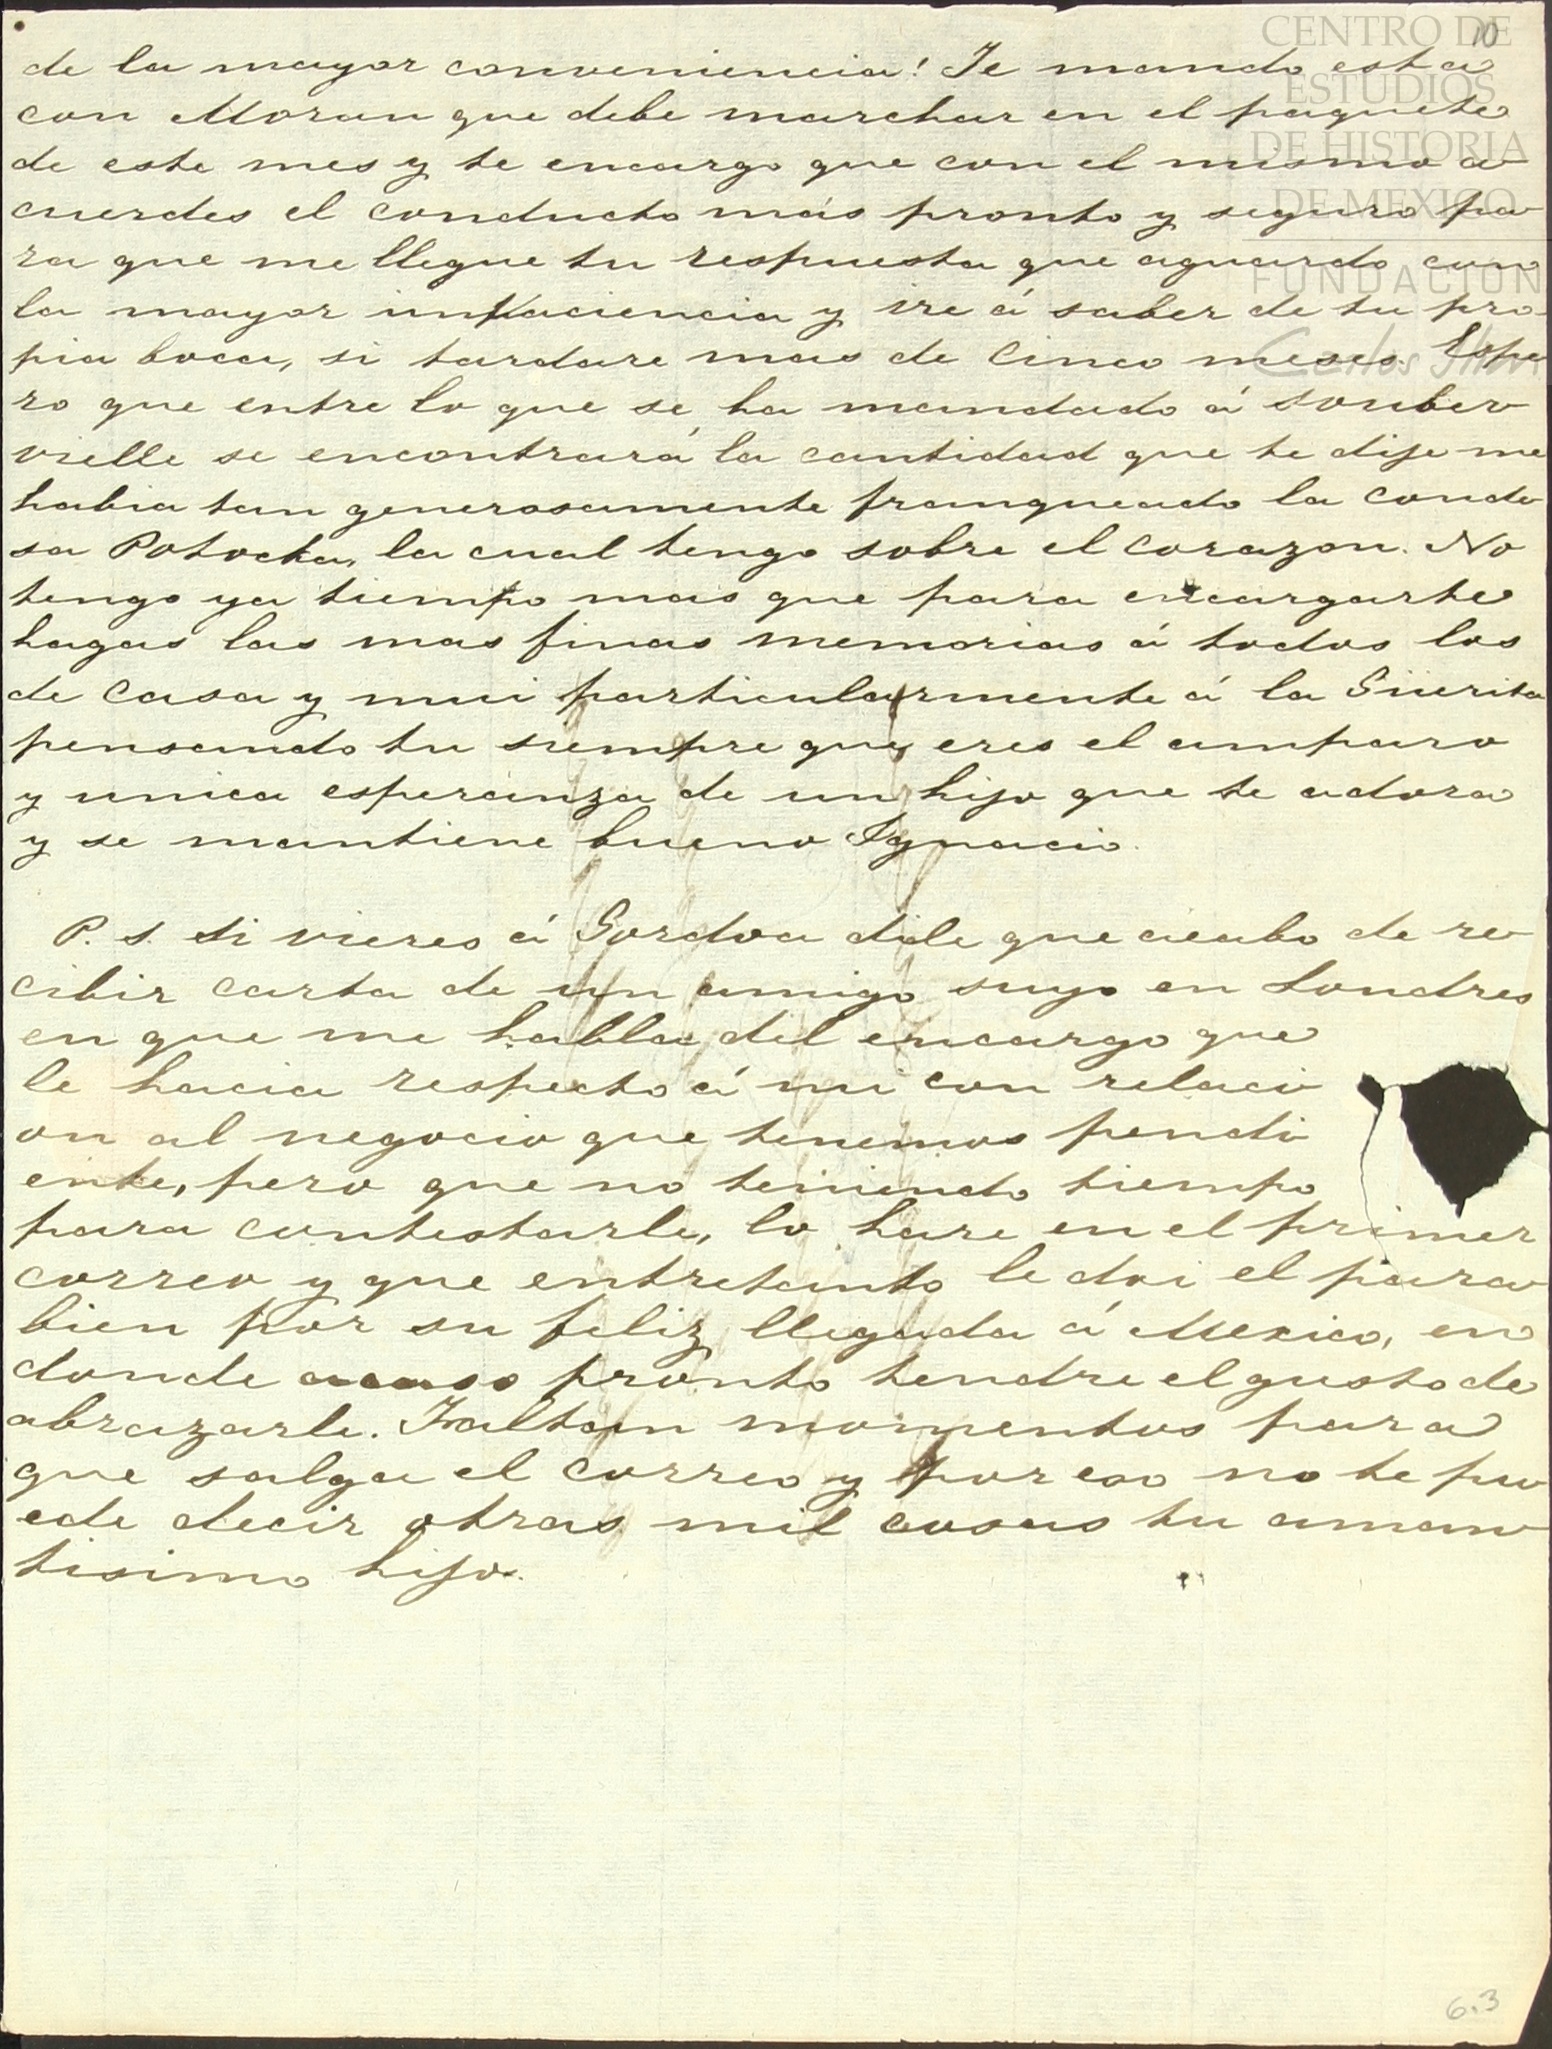 10
CENTRO DE
ESTUDIOS
DE HISTORIA
DE MEXICO
FUNDACION
Carlos Slim
de la mayor conveniencia! Te mando esta
con Moran que debe marchar en el paquete
de este mes y te encargo que con el mismo a-
cuerdes el conducto más pronto y seguro pa-
ra que me llegue tu respuesta que aguardo con
la mayor impaciencia y ire á saber de tu pro-
pia boca, si tardare mas de cinco meses. Espe-
ro que entre lo que se ha mandado á Souber-
vielle se encontrará la cantidad que te dije me
habia tan generosamente franqueado la conde-
sa Potocka, la cual tengo sobre el corazon. No
tengo ya tiempo mas que para encargarte
hagas las mas finas memorias á todos los
de casa y mui particularmente á la Güerita
pensando tu siempre que eres el amparo
y unica esperanza de un hijo que te adora
y se mantiene bueno Ignacio.
P. S. Si vieres á Gordoa dile que acabo de re-
cibir carta de un amigo suyo en Londres
en que me habla del encargo que
le hacia respecto á mi con relaci
on al negocio que tenemos pendi
ente, pero que no teniendo tiempo
para contestarle, lo hare en el primer
correo y que entretanto le doi el para-
bien por su feliz llegada á Mexico, en
donde acaso pronto tendre el gusto de
abrazarle. Faltan momentos para
que salga el correo y por eso no te pu-
ede decir otras mil cosas tu aman-
tisimo hijo.
6.3